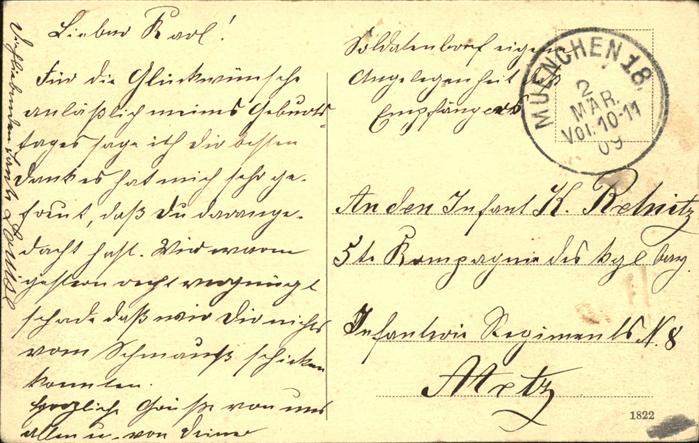 Lieber Karl!
Für die Glückwünsche
anläßlich meines Geburts-
tages sage ich dir besten
Dank es hat mich sehr ge-
freut, daß Du daran ge-
dacht hast. Wir waren
gestern recht vergnügt
schade daß wir Dir nichts
vom Schmauß schicken
konnten.
Herzliche Grüße von uns
allen u. von Deiner
Dichliebenden Tante Louise
Soldatenbrief eigene
Angelegenheit des
Empfängers
MUENCHEN 18.
2
MAR.
Vor. 10-11
09
An den Infant K. Rebnitz
5te Kompagnie des kgl bay
Infanterie Regiments N. 8
Metz
1822